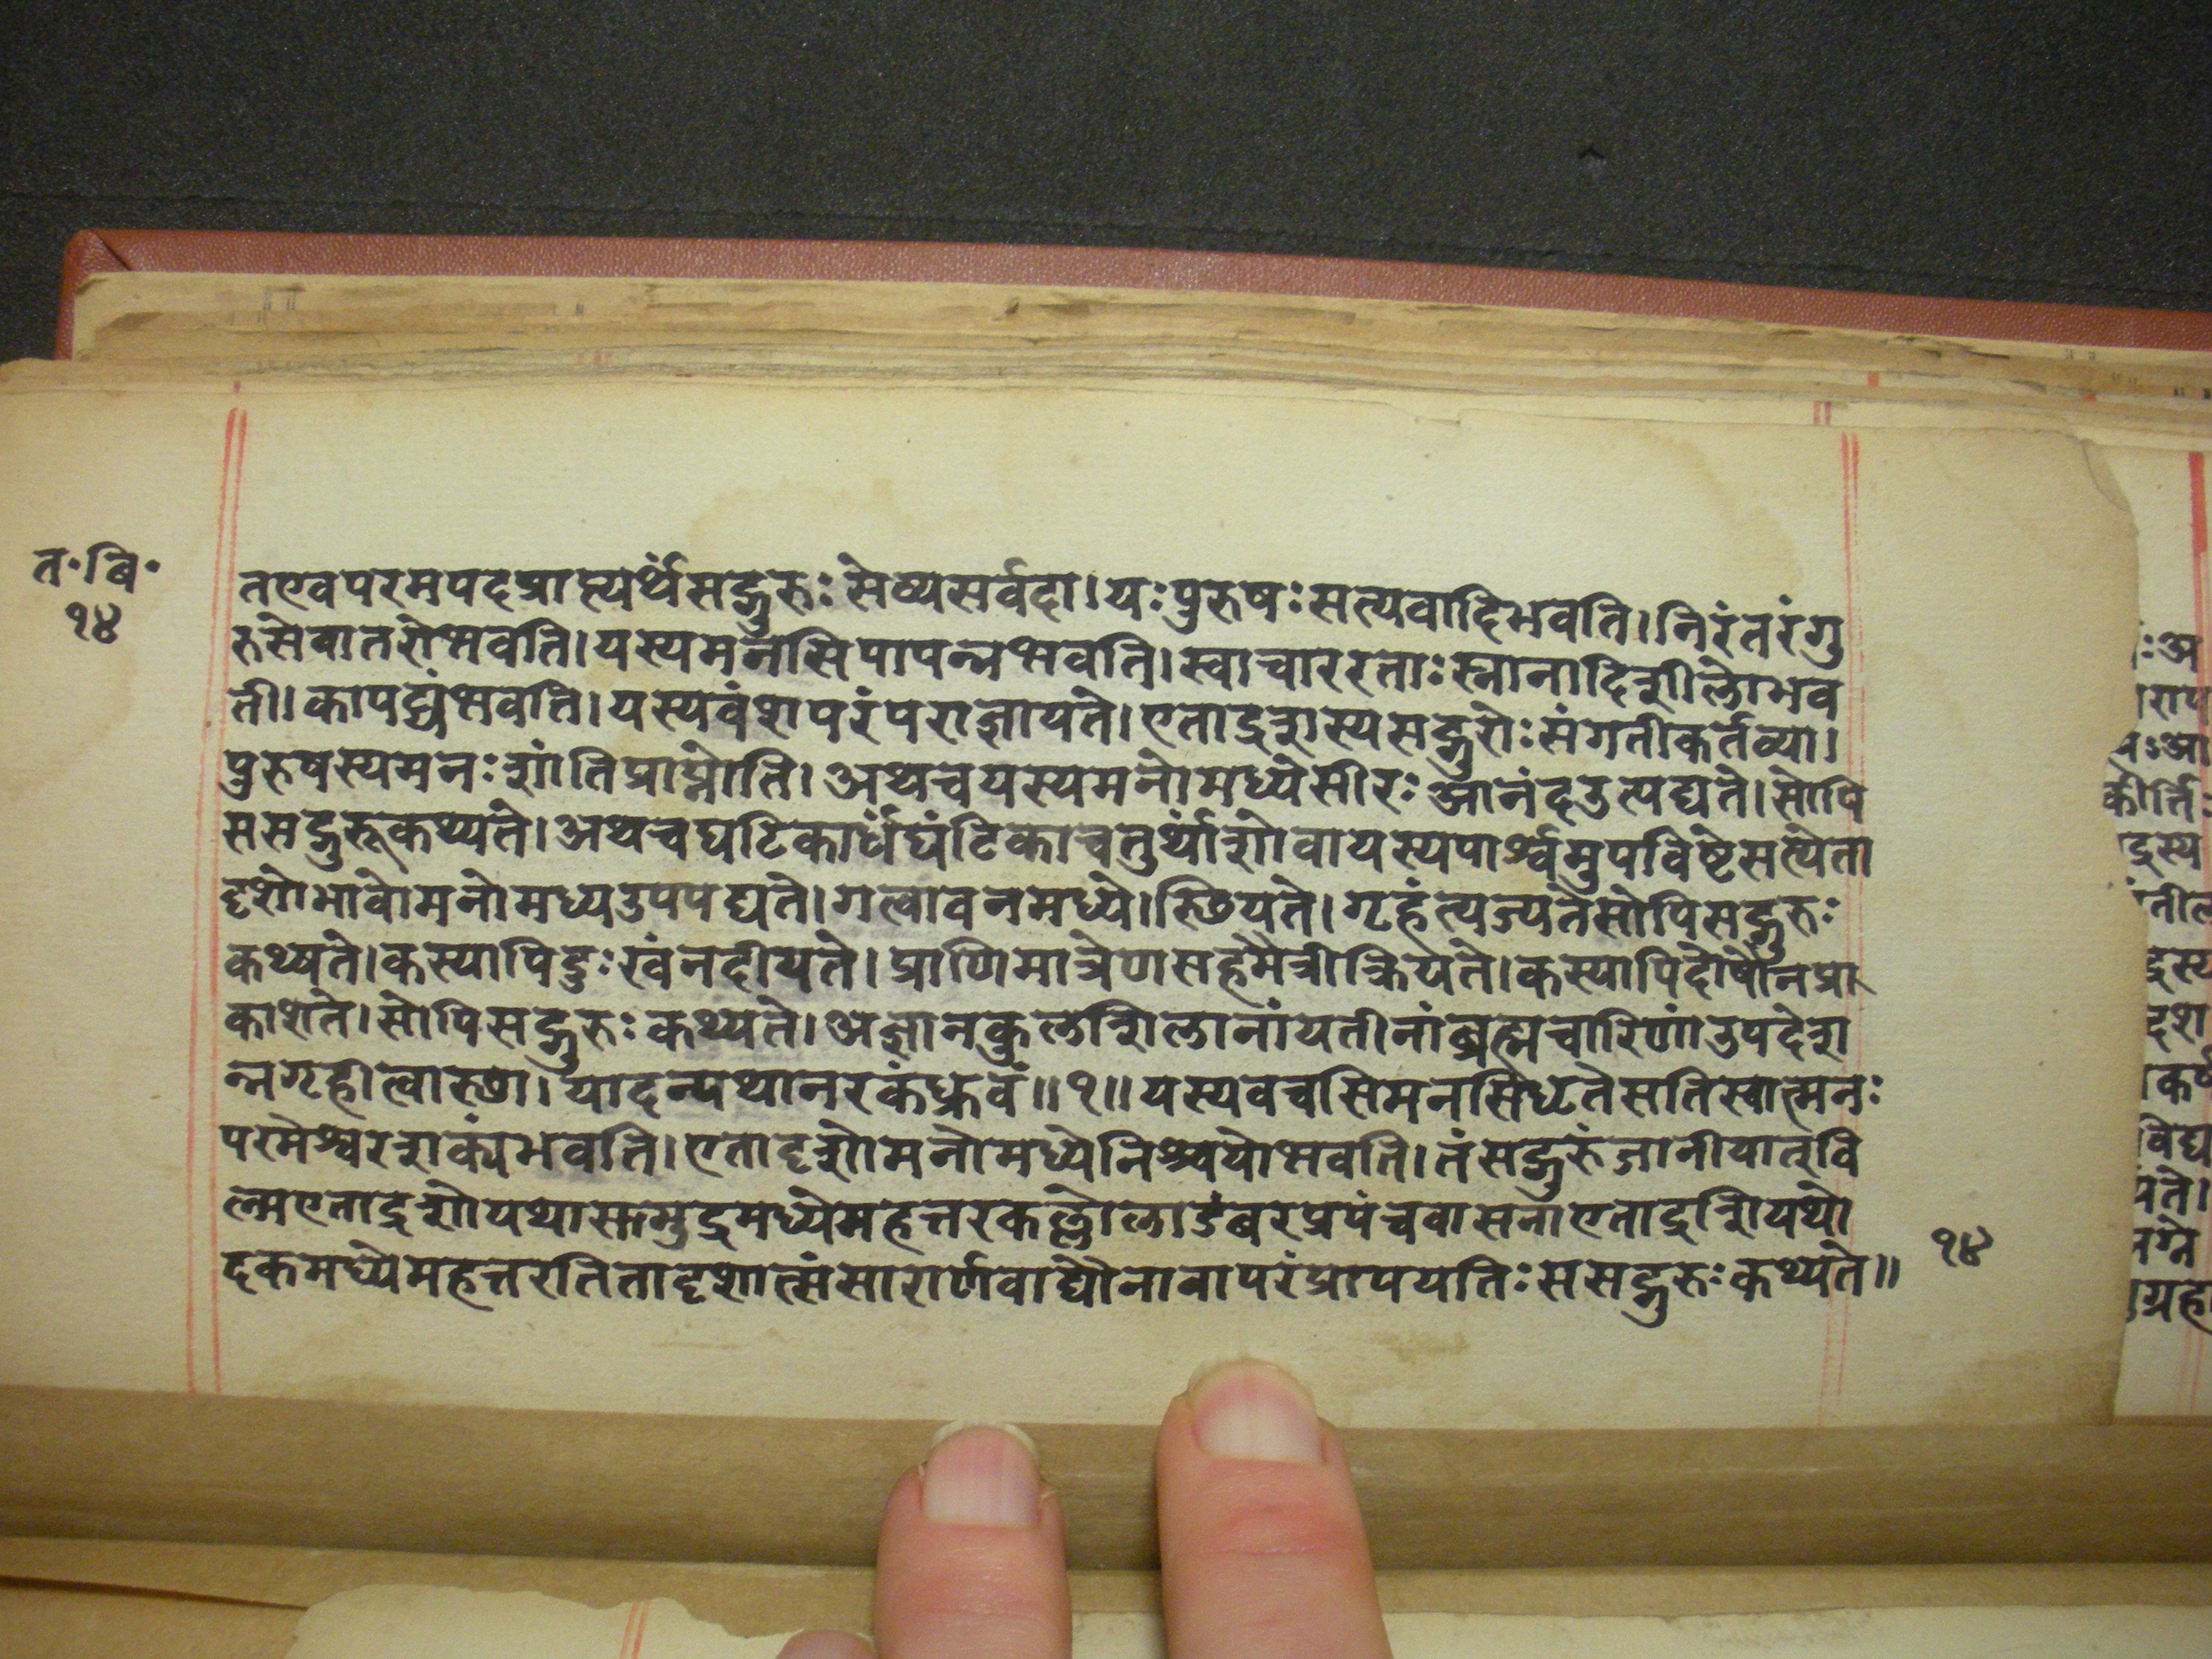 त॰बि॰
१४
तएवपरमपदप्राप्त्यर्थंसद्गुरुः सेव्यसर्वदा। यः पुरुषः सत्यवादिभवति। निरंतरंगु
रुसेवातरोभवति। यस्यमनसिपापन्नभवति। स्वाचाररताः स्नानादिशीलोभव
ती। कापद्यंभवति। यस्यवंशपरंपराज्ञायते। एतादृशस्यसद्गुरोः संगतीकर्तव्या।
पुरुषस्यमनः शांतिप्राप्नोति। अथचयस्यमनोमध्येसीरः आनंदउत्पद्यते। सोपि
ससद्गुरूकथ्यते। अथचघटिकार्धंघंटिकाचतुर्थांशोवायस्यपार्श्वमुपविष्टेसत्येता
दृशोभावोमनोमध्यउपपद्यते। गत्वावनमध्ये। स्छियते। गृहंत्यज्यतेसोपिसद्गुरुः
कथ्यते। कस्यापिदुः खंनदीयते। प्राणिमात्रेणसहमैत्रीक्रियते। कस्यापिदोषोनप्रा
काशते। सोपिसद्गुरुः कथ्यते। अज्ञानकुलशिलानांयतीनांब्रह्मचारिणांउपदेश
न्नगृहीत्वारुणा। यादन्यथानरकंध्रुवं॥१॥ यस्यवचसिमनसिधृतेसतिस्वात्मनः
परमेश्वरशक्यंभवति। एतादृशोमनोमध्येनिश्चयोभवति। तंसद्गुरुंजानीयात्वि
ल्मएतादृशोयथासमुद्रमध्येमहत्तरकल्लोलाडंबरप्रपंचवासनाएतादृशियथो
दकमध्येमहत्तरतितादृशात्संसारार्णवाद्योनावापरंप्रापयतिः ससद्गुरुः कथ्यते॥
१४